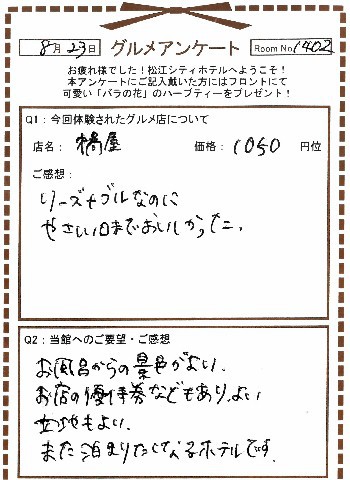 8月23日 グルメアンケート Room No 1402
お疲れ様でした！松江シティホテルへようこそ！
本アンケートにご記入戴いた方にはフロントにて
可愛い「バラの花」のハーブティーをプレゼント！
Q1：今回体験されたグルメ店について
店名： 橘屋 価格： 1050 円位
ご感想：
リーズナブルなのに
やさしい味までおいしかった。
Q2：当館へのご要望・ご感想
お風呂からの景色がよい、
お店の優待券などもあり、よい
立地もよい、
また泊まりたくなるホテルです。